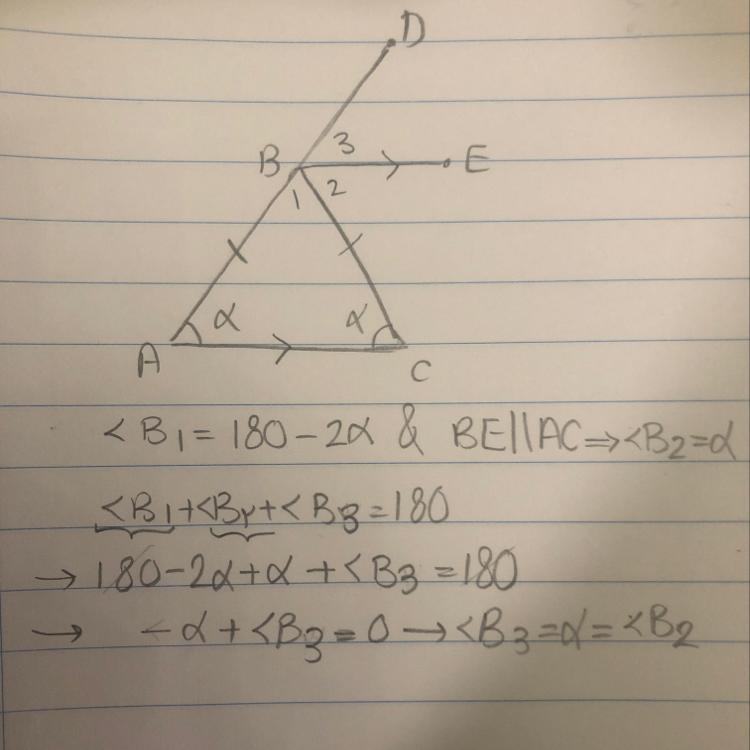 D
B 3 E
1 2
α α
A C
<B1 = 180 - 2α & BE||AC ⇒ <B2 = α
<B1 + <B٢ + <B3 = 180
→ 180 - 2α + α + <B3 = 180
→ - α + <B3 = 0 → <B3 = α = <B2